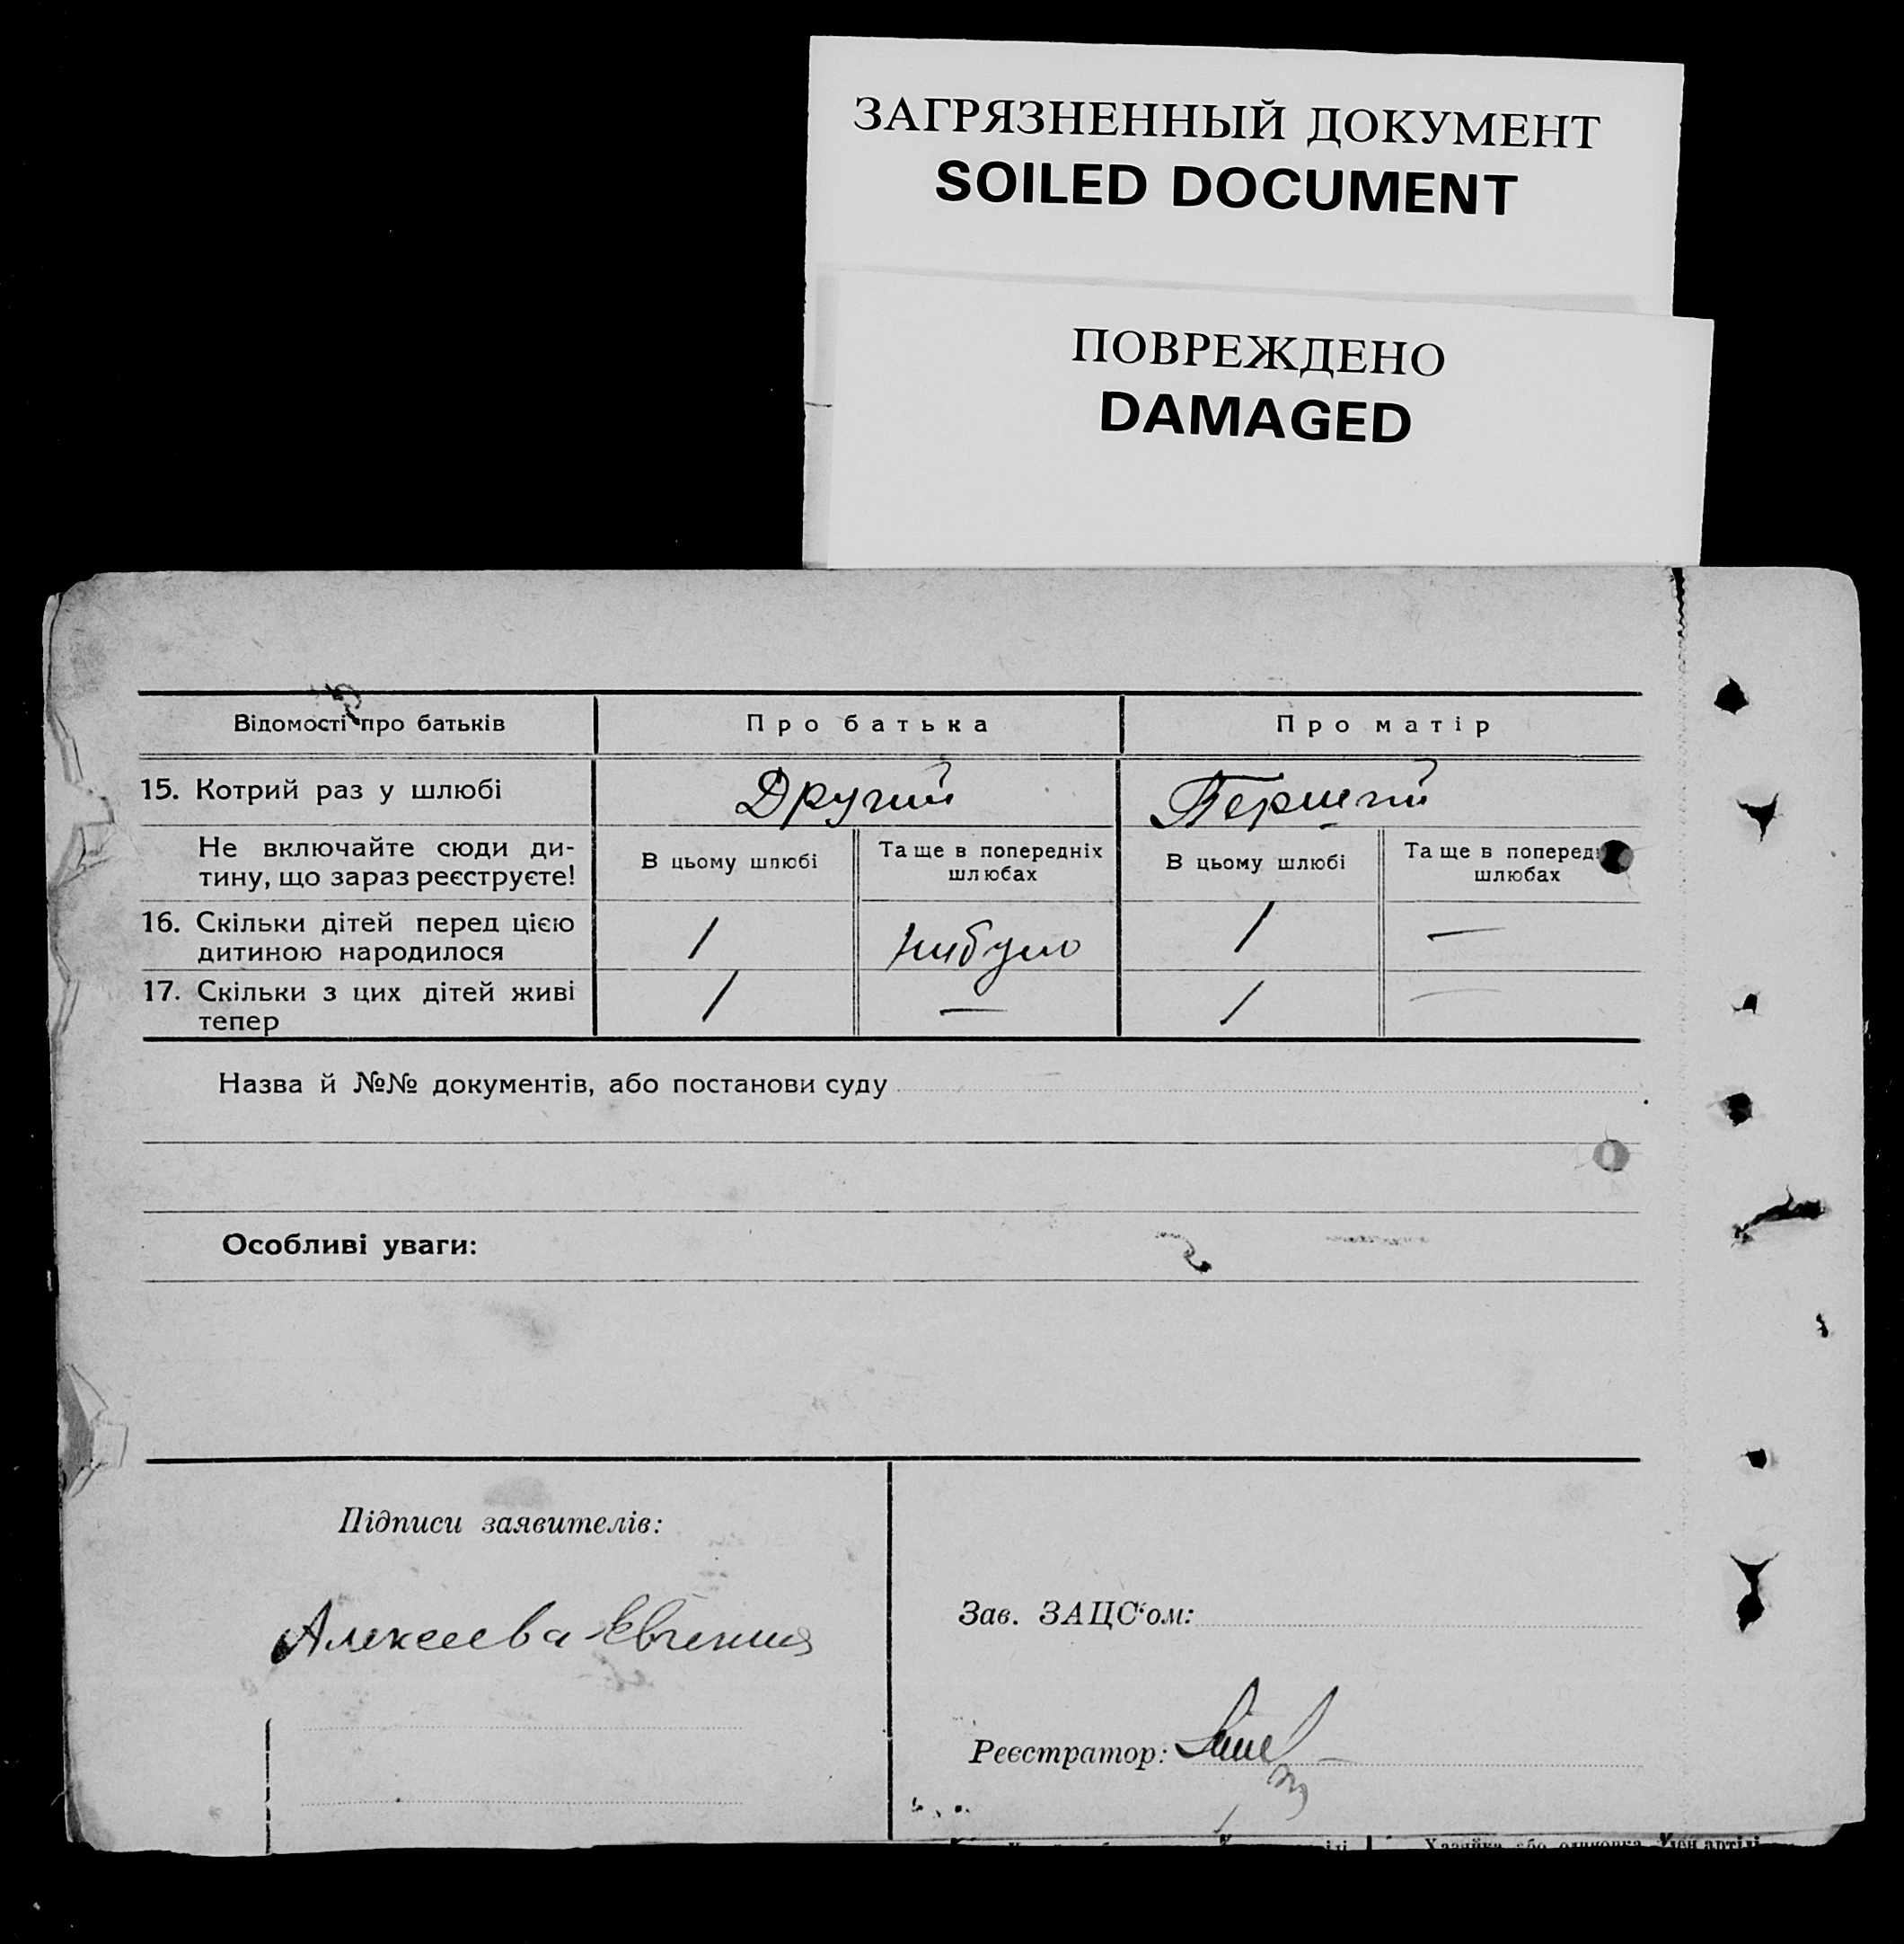 ЗАГРЯЗНЕННЫЙ ДОКУМЕНТ
SOILED DOCUMENT
ПОВРЕЖДЕНО
DAMAGED
Відомості про батьків Про батька Про матір
15. Котрий раз у шлюбі Другий Перший
Не включайте сюди ди-
тину, що зараз реєструєте!
В цьому шлюбі Та ще в попередніх
шлюбах
В цьому шлюбі Та ще в поперед
шлюбах
16. Скільки дітей перед цією
дитиною народилося
1 1 —
17. Скільки з цих дітей живі
тепер
1 — 1 —
Назва й №№ документів, або постанови суду
Особливі уваги:
Підписи заявителів:
Алексеева Евгения
Зав. ЗАЦС'ом:
Реєстратор: